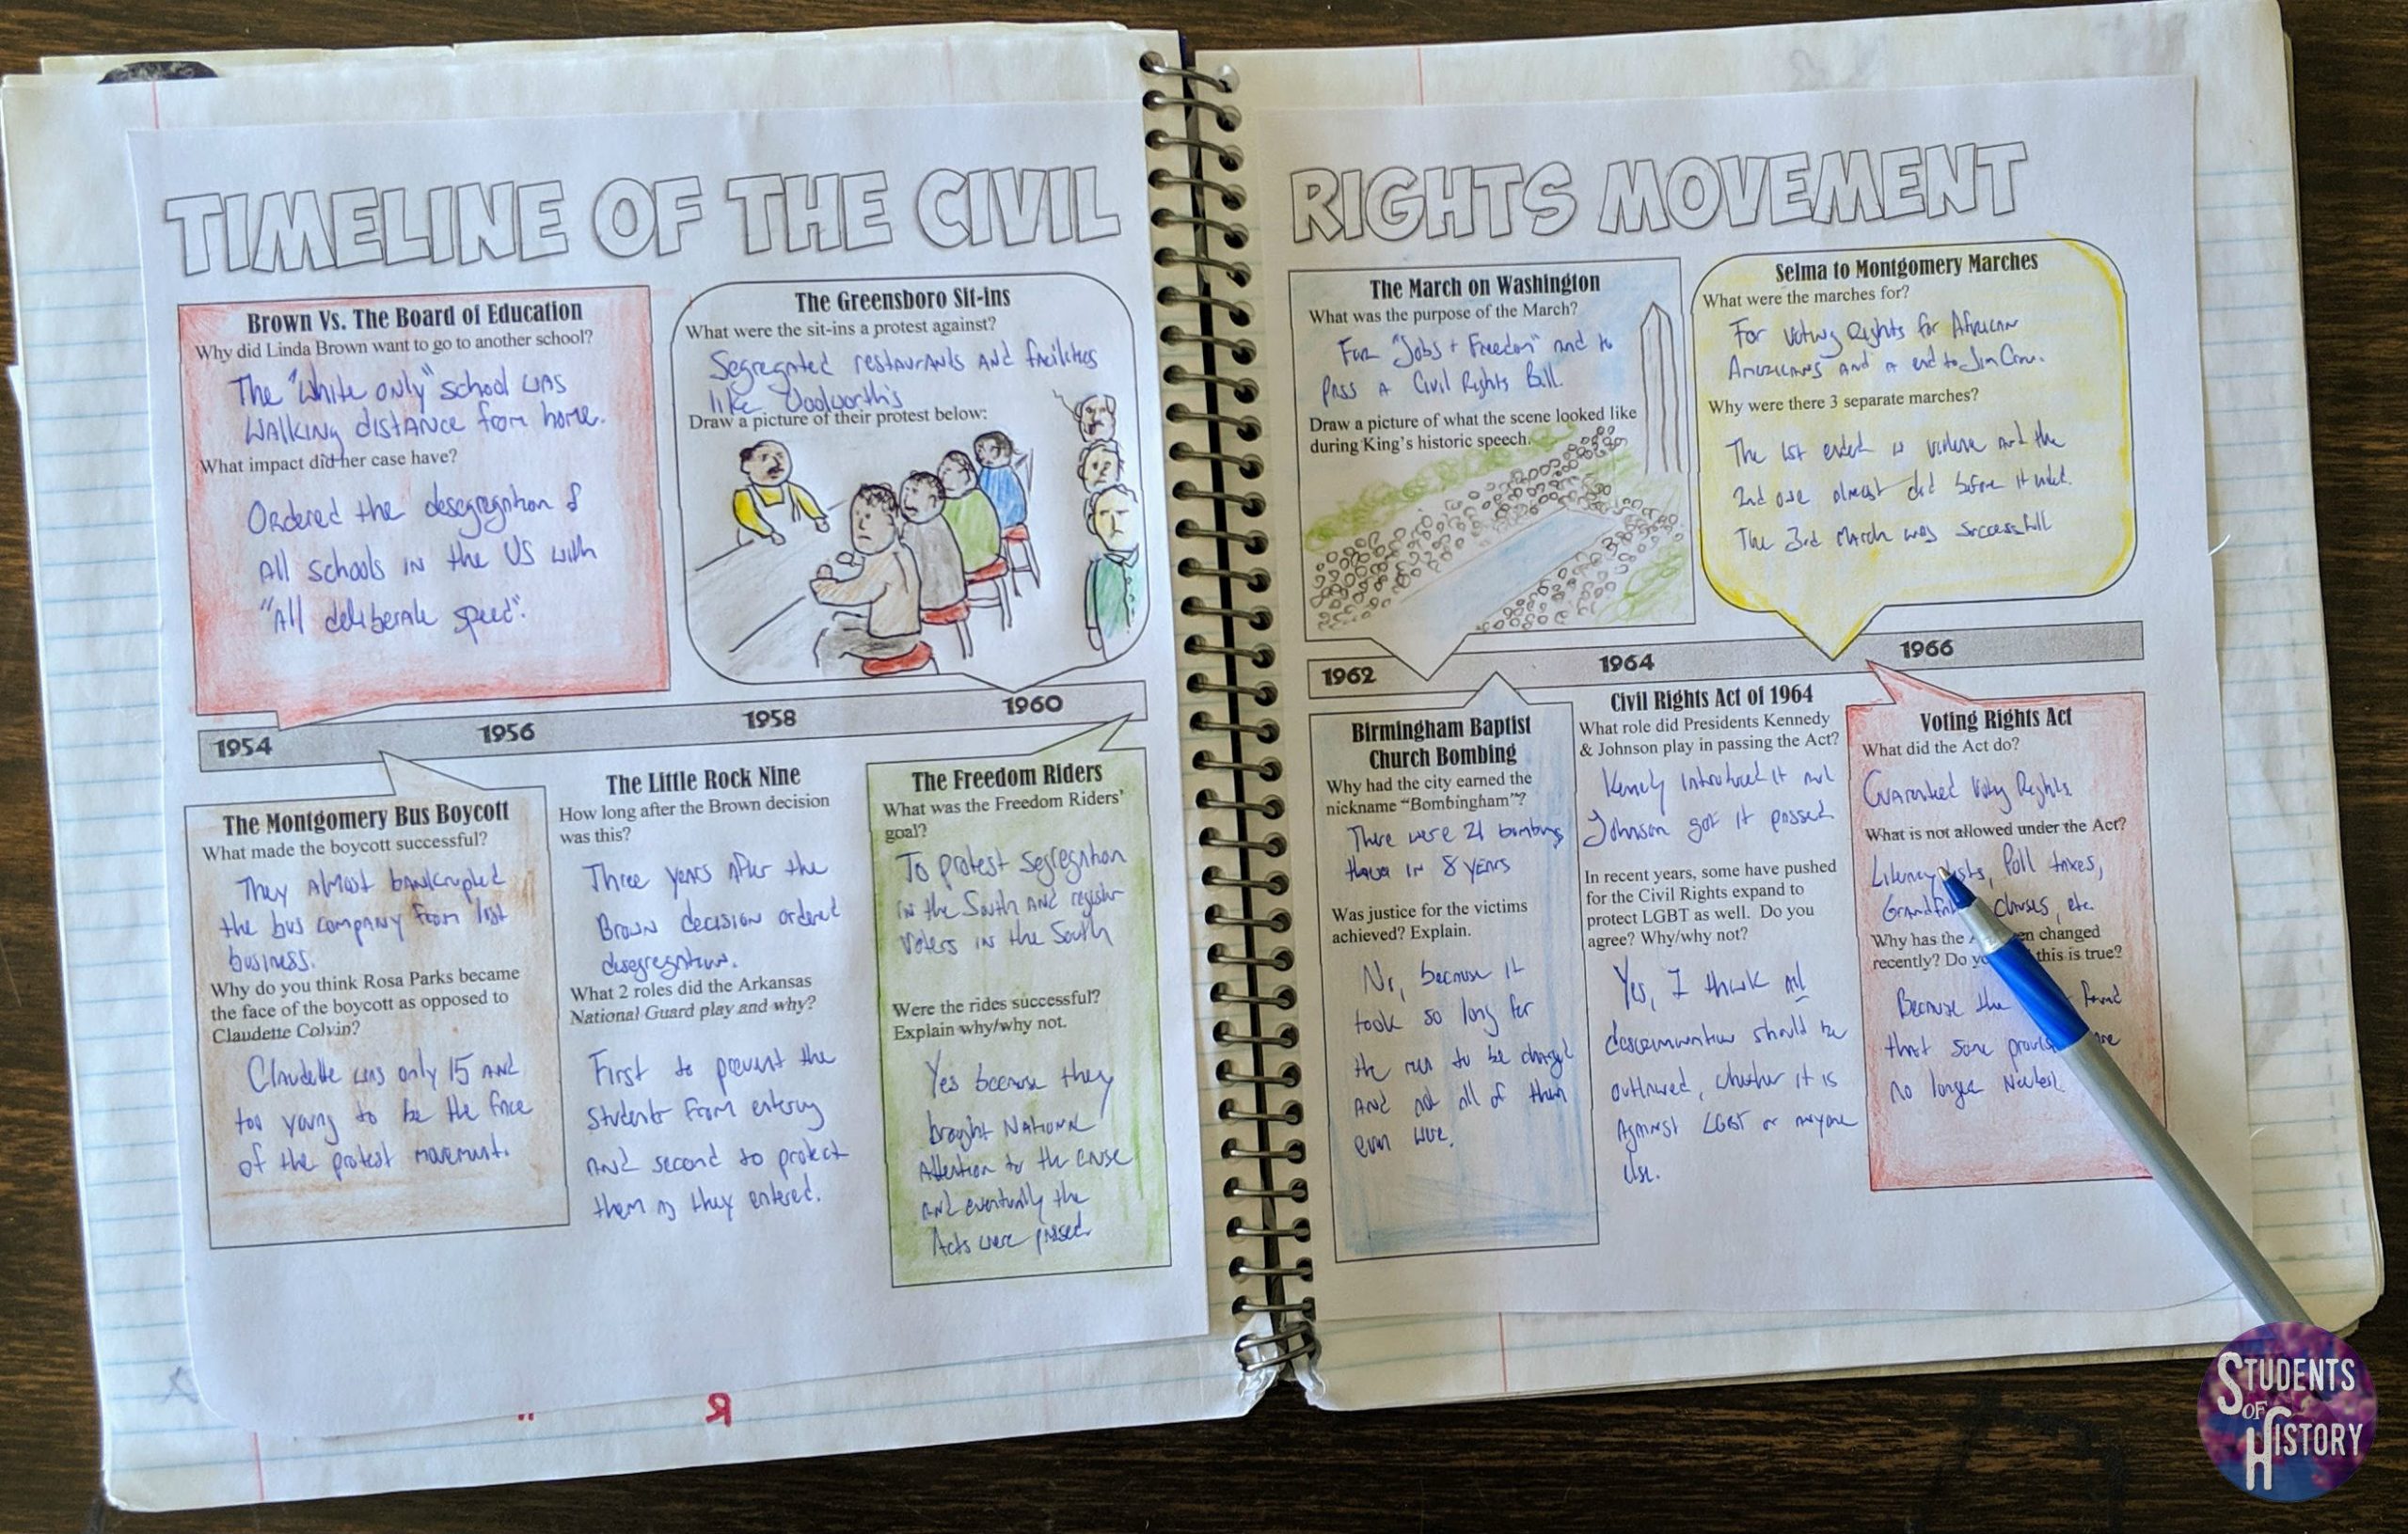 TIMELINE OF THE CIVIL
Brown Vs. The Board of Education
Why did Linda Brown want to go to another school?
The "White only" school was
walking distance from home.
What impact did her case have?
Ordered the desegregation of
All schools in the US with
"All deliberate speed".
The Greensboro Sit-ins
What were the sit-ins a protest against?
Segregated restaurants and facilities
like Woolworth's
Draw a picture of their protest below:
1954
1956
1958
1960
The Montgomery Bus Boycott
What made the boycott successful?
They Almost bankrupted
the bus company from lost
business.
Why do you think Rosa Parks became
the face of the boycott as opposed to
Claudette Colvin?
Claudette was only 15 and
too young to be the face
of the protest movement.
The Little Rock Nine
How long after the Brown decision
was this?
Three years After the
Brown decision ordered
desegregation.
What 2 roles did the Arkansas
National Guard play and why?
First to prevent the
students from entering
and second to protect
them as they entered.
The Freedom Riders
What was the Freedom Riders'
goal?
To protest segregation
in the South and register
voters in the South
Were the rides successful?
Explain why/why not.
Yes because they
brought National
Attention to the cause
and eventually the
Acts were passed
RIGHTS MOVEMENT
The March on Washington
What was the purpose of the March?
For "Jobs + Freedom" and to
pass a Civil Rights Bill.
Draw a picture of what the scene looked like
during King's historic speech.
Selma to Montgomery Marches
What were the marches for?
For Voting Rights for African
Americans and a end to Jim Crow.
Why were there 3 separate marches?
The 1st ended in violence and the
2nd one almost did before it ended.
The 3rd March was successfull
1962
1964
1966
Birmingham Baptist
Church Bombing
Why had the city earned the
nickname "Bombingham"?
There were 21 bombings
in 8 years
Was justice for the victims
achieved? Explain.
No, because it
took so long for
the men to be charged
And not all of them
even were.
Civil Rights Act of 1964
What role did Presidents Kennedy
& Johnson play in passing the Act?
introduced it and
Johnson got it passed
In recent years, some have pushed
for the Civil Rights expand to
protect LGBT as well. Do you
agree? Why/why not?
Yes, I think all
should be
outlawed, whether it is
Against LGBT or anyone
else.
Voting Rights Act
What did the Act do?
Guaranteed Voting Rights
What is not allowed under the Act?
Literacy tests, Poll taxes,
clauses, etc.
Why has the en changed
recently? Do yo this is true?
Because the found
that some
no longer needed.
R
STUDENTS
OF
HISTORY